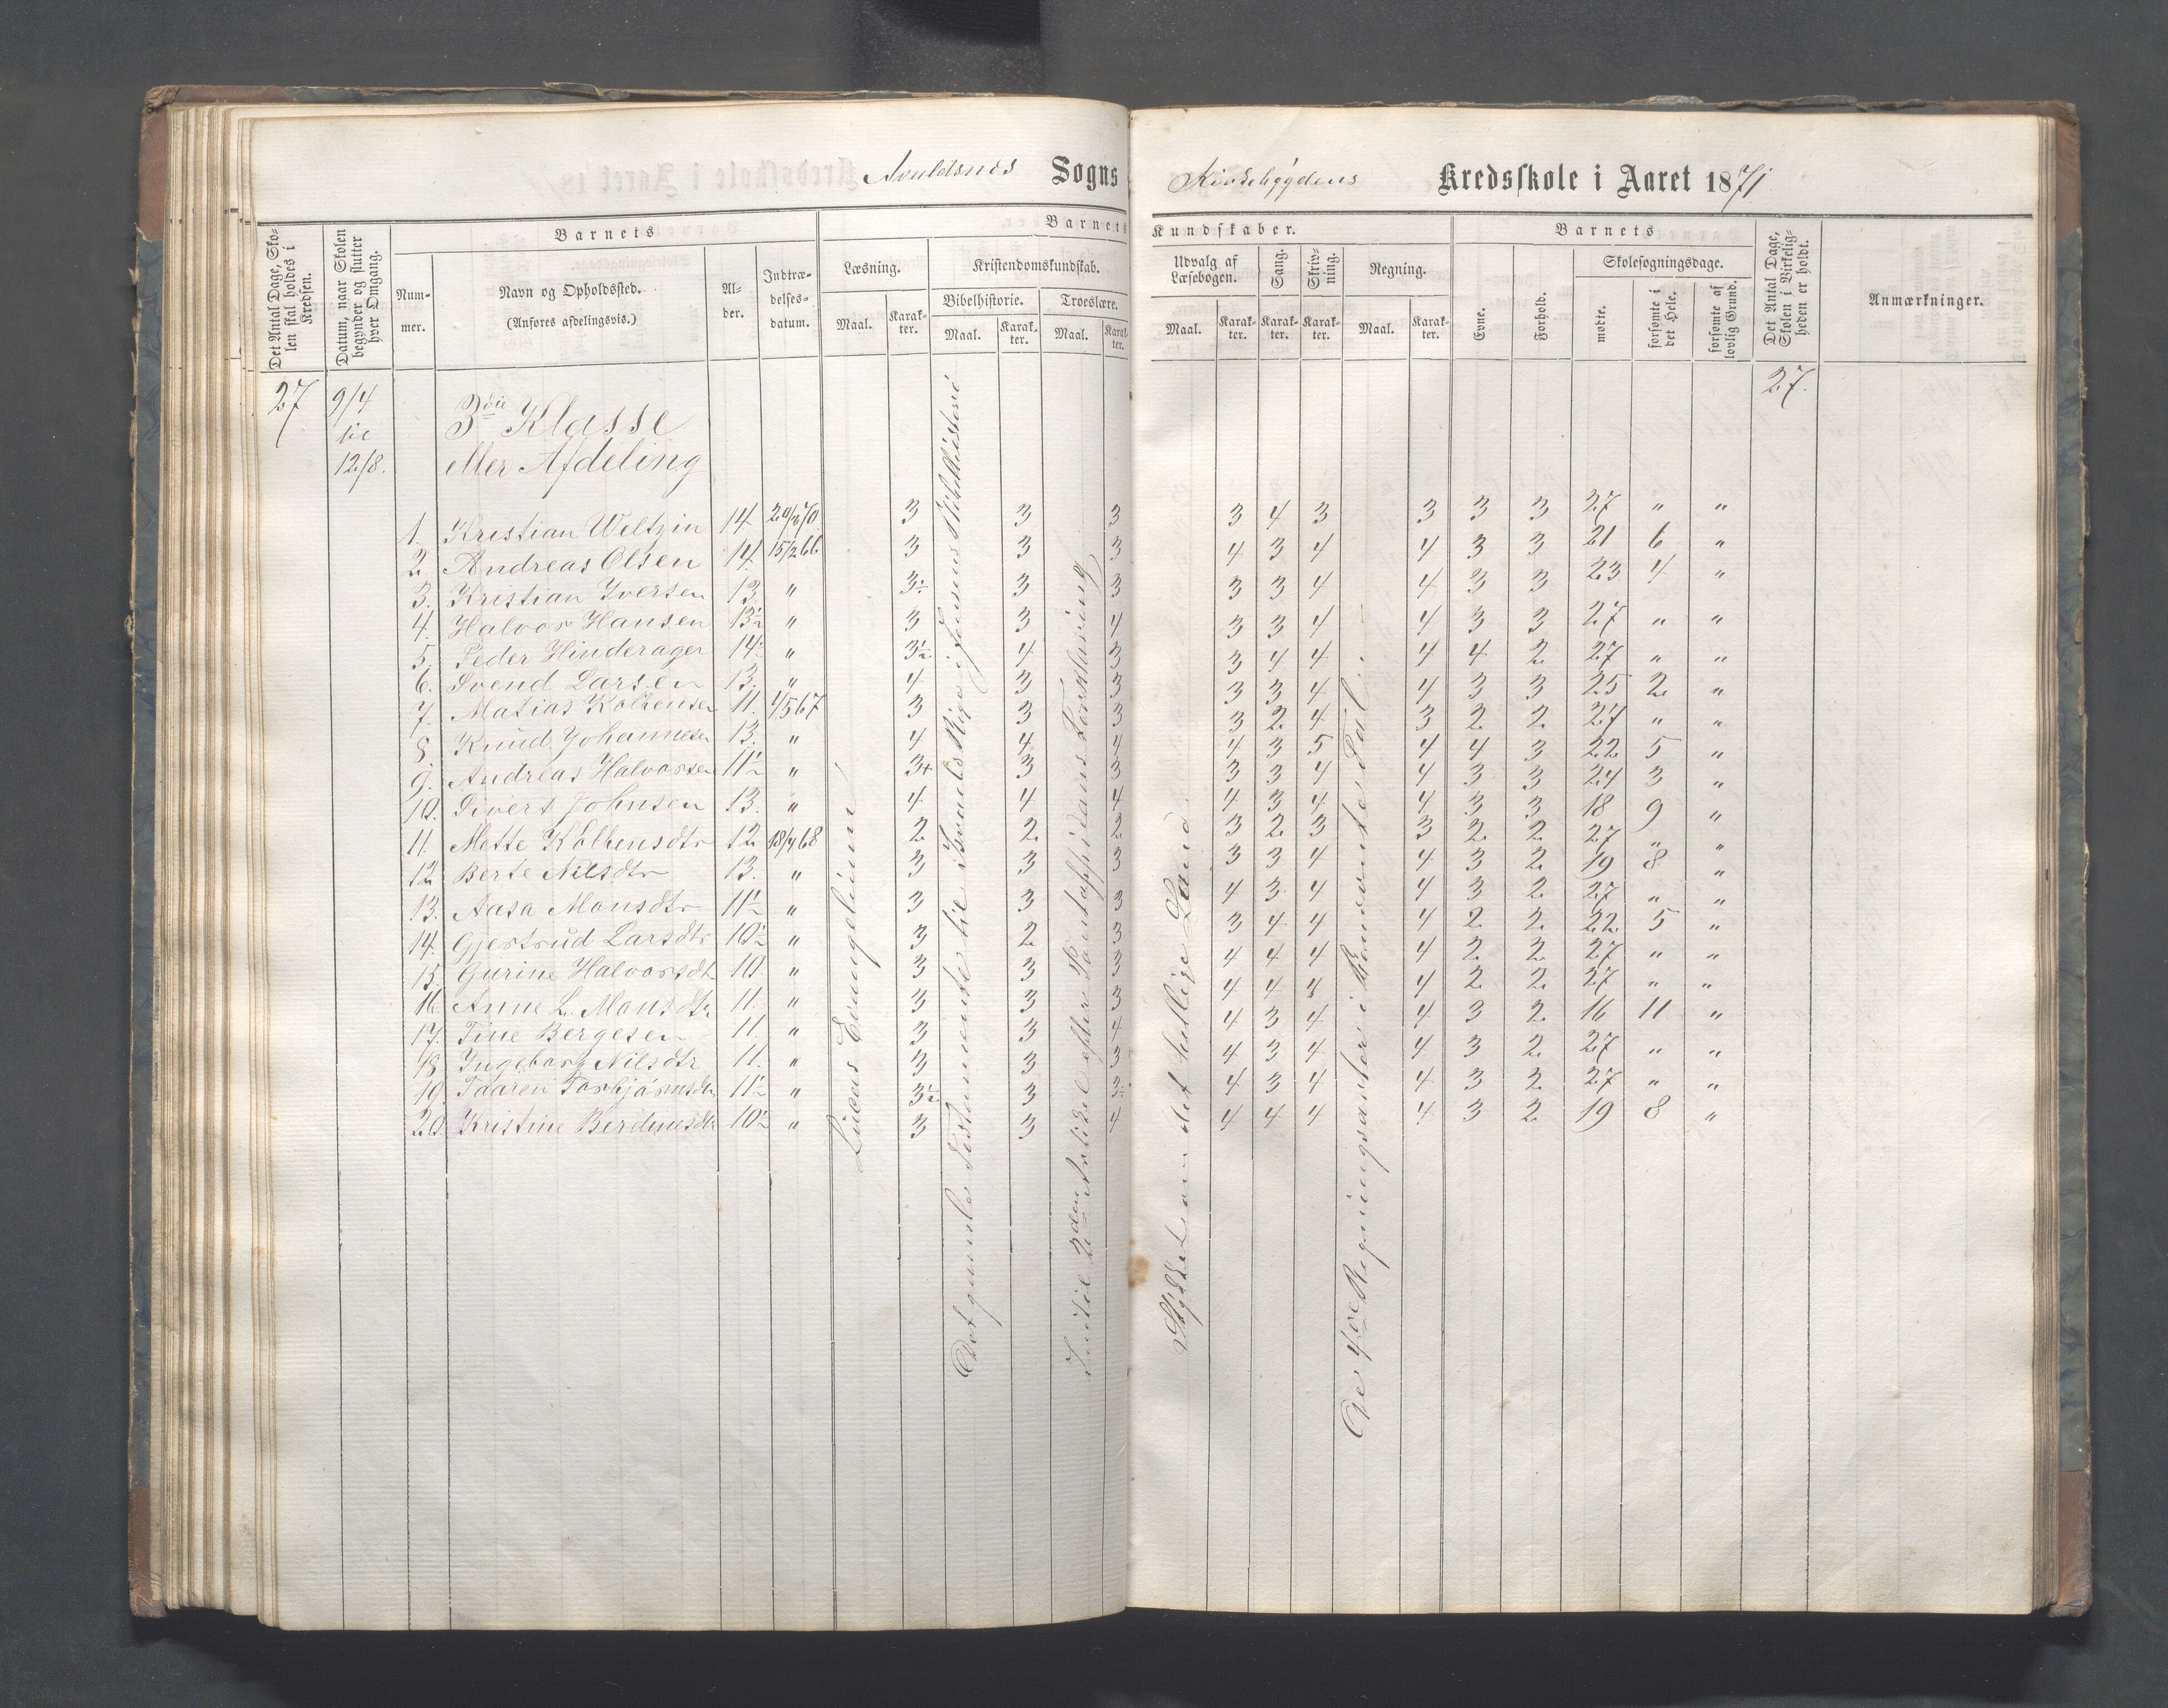 Avaldsnes Sogns
Kirkebygdens Kredsskole i Aaret 1871
Det Antal Dage, Skolen skal holdes i Kredsen.
Datum, naar Skolen begynder og slutter hver Omgang.
Barnets
Nummer.
Navn og Opholdssted.
(Anføres afdelingsvis.)
Alder.
Indtrædelsesdatum.
Barnets
Læsning.
Maal.
Karakter.
Kristendomskundskab.
Bibelhistorie.
Maal.
Karakter.
Troeslære.
Maal.
Karakter.
Kundskaber.
Udvalg af Læsebogen.
Maal.
Karakter.
Sang.
Karakter.
Skrivning.
Karakter.
Regning.
Maal.
Karakter.
Barnets
Evne.
Forhold.
Skolesøgningsdage.
mødte.
forsømte i det Hele.
forsømte af lovlig Grund.
Det Antal Dage, Skolen i Virkeligheden er holdt.
Anmærkninger.
27 9/4 27.
til 3die Klasse
12/8. eller Afdeling
1. Kristian Weltzin 14 20/3 70 3 3 3 3 4 3 3 3 3 27 " "
2. Andreas Olsen 14 15/2 66 3 3 3 4 3 4 4 3 3 21 6 "
3. Kristian Iversen 13 " 3½ 3 3 3 3 4 4 3 3 23 4 "
4. Halvor Hansen 13½ " 3 3 4 3 3 4 4 3 3 27 " "
5. Peder Hinderager 14½ " 3½ 4 3 3 4 4 4 4 2 27 " "
6. Svend Larsen 13. " 4 3 3 3 3 4 4 3 3 25 2 "
7. Matias Koltensen 11. 1/5 67 3 3 3 3 2 4 3 2 2 27 " "
8. Knud Johannesen 13. " 4 4 4 4 3 5 4 4 3 22 5 "
9. Andreas Halvorsen 11½ " 3+ 3 3 3 3 4 4 3 3 24 3 "
10. Sivert Johnsen 13. " 4 4 4 4 3 4 4 3 3 18 9 "
11. Mette Koltensdtr 12 18/4 68 2 2 2 3 2 3 3 2 2 27 " "
12 Berte Nilsdtr 13. " 3 3 3 3 3 4 4 3 2 19 8 "
13. Aasa Monsdtr 11½ " 3 3 3 4 3 4 4 3 2 27 " "
14. Gjertrud Larsdtr 10½ " 3 2 3 3 4 4 4 2 2 22 5 "
15. Gurine Halvorsdtr 10. " 3 3 3 4 4 4 4 2 2 27 " "
16 Anne L. Monsdtr 11. " 3 3 3 4 4 4 4 2 2 27 " "
17. Tine Bergesen 11. " 3 3 4 4 3 4 4 3 2 16 11 "
18 Ingeborg Nilsdtr 11. " 3 3 3 4 3 4 4 3 2 27 " "
19. Taaren Torbjörnsdtr 11½ " 3½ 3 3½ 4 3 4 4 3 2 27 " "
20 Kristine 10½ " 3 3 4 4 4 4 4 3 2 19 8 "
Lucas Evangelium
Det gamle Testamente til Israels Rige i Jensens Bibelhistorie
Indtil 2den Artikel efter Pontoppidans Forklaring
Stykket om det hellige Land
De 4 Regningsarter i Tal.